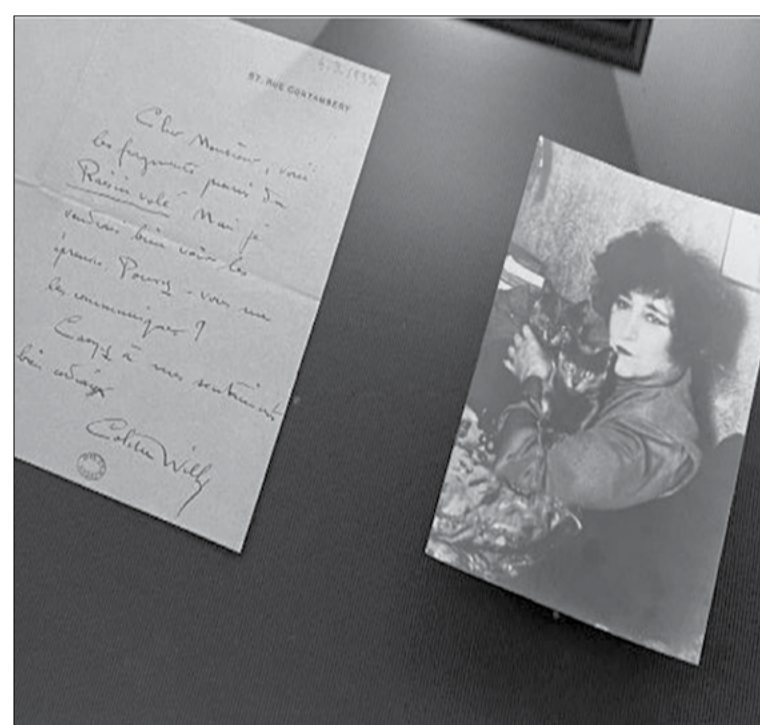 57, RUE CORTAMBERT
Cher Monsieur, voici
les fragments parus du
Raisin volé. Mais je
voudrais bien voir les
épreuves. Pouvez-vous me
les communiquer ?
Croyez à mes sentiments
bien cordiaux
Colette Willy